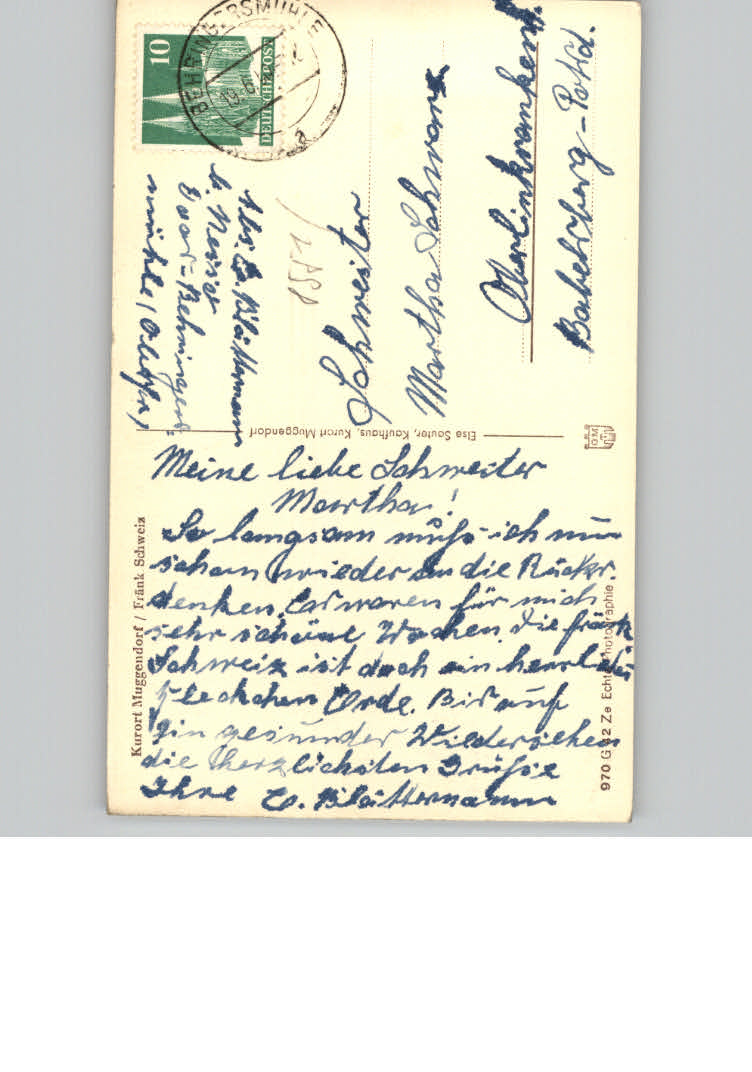 BEHRINGERSMÜHLE
19.6.
a
10
DEUTSCHE POST
Abs. E. Blättermann
b. Neiser
mühle (Obfr.)
Schwester
Martha Schwarz
Oberlinkrankenh.
Babelsberg-Potsd.
Elsa Sauter, Kaufhaus, Kurort Muggendorf
Kurort Muggendorf / Fränk Schweiz
970 G 12 Ze Echte Photographie
Meine liebe Schwester
Martha!
So langsam muß ich nun
schon wieder an die Rückr.
denken. Es waren für mich
sehr schöne Wochen. Die fränk.
Schweiz ist doch ein herrliches
Fleckchen Erde. Bis auf
ein gesundes Wiedersehen
die herzlichsten Grüße
Ihre E. Blättermann